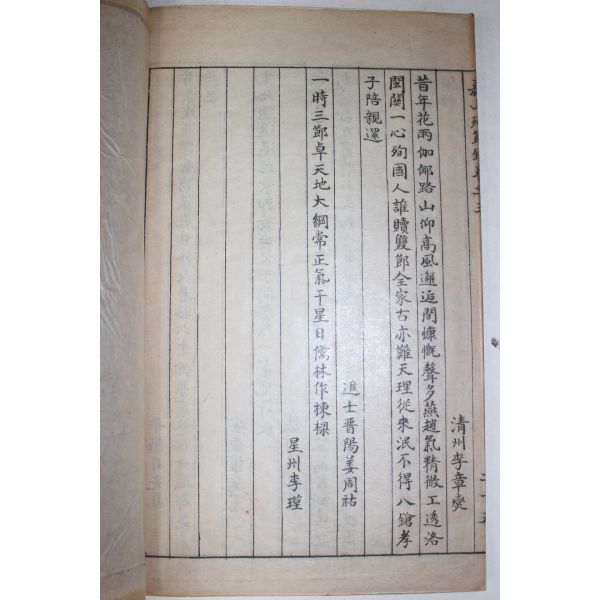 清州李章奕
昔年花雨伽倻路山仰高風邂逅間慷慨聲多燕趙氣精微工透洛
閩關一心殉國人誰贖雙節全家古亦難天理從來泯不得八鎗孝
子陪親還
進士晋陽姜周祜
一時三節卓天地大綱常正氣干星日儒林作棟樑
星州李瑾